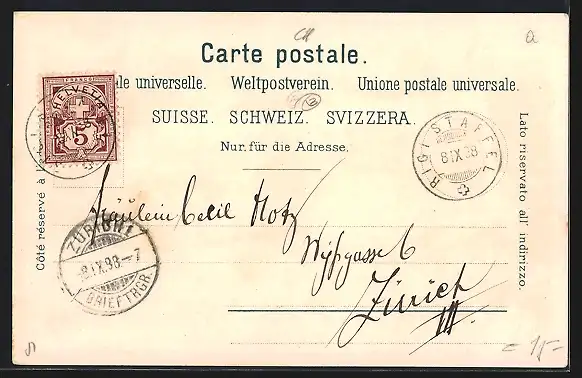 Carte postale.
ale universelle. Weltpostverein. Unione postale universale.
SUISSE. SCHWEIZ. SVIZZERA.
Nur für die Adresse.
Côté réservé à l'adr
Lato riservato all' indirizzo.
FRANCO
HELVETIA
5
RIGI STAFFEL
8 IX 98
ZÜRICH 1
8.IX.98.-7
BRIEFTRGR.
Fräulein Cecil Motz
Wyßgasse 6
Zürich
III.
= 15=